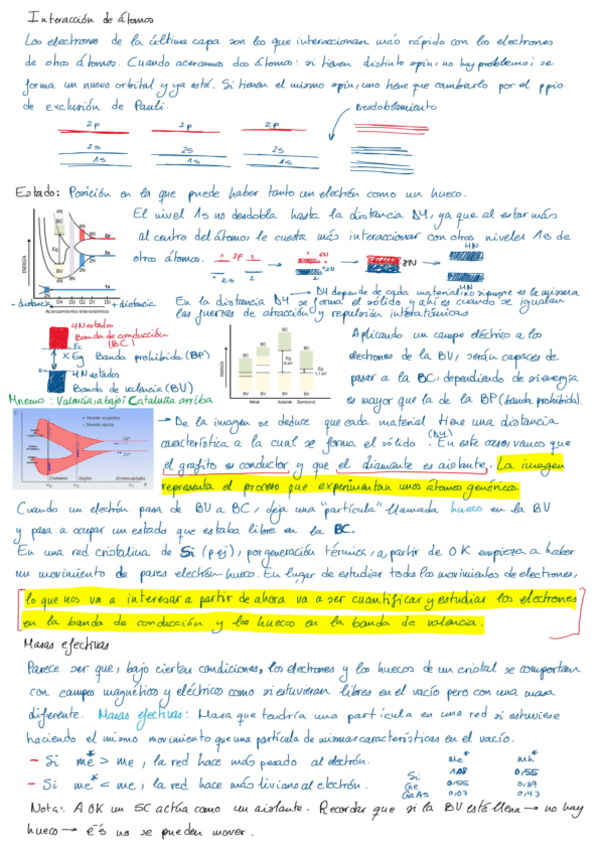 Interacción de átomos
Los electrones de la última capa son los que interaccionan más rápido con los electrones
de otros átomos. Cuando acercamos dos átomos: si tienen distinto spin, no hay problema; se
forma un nuevo orbital y ya está. Si tienen el mismo spin, uno tiene que cambiarlo por el ppio
de exclusión de Pauli.
Desdoblamiento
2p 2p 2p
2s 2s 2s
1s 1s 1s
Estado: Posición en la que puede haber tanto un electrón como un hueco.
El nivel 1s no desdobla hasta la distancia D4, ya que al estar más
al centro del átomo, le cuesta más interaccionar con otros niveles 1s de
otros átomos.
ENERGÍA
BC
Eg
BV
2p
2s
1s
D4 D3 D2 D1 D0
Acercamiento interatómico
- distancia
+ distancia
2p
2s
6N
2N
8N
4N
4N
D4 depende de cada material no siempre es la misma
En la distancia D4 se forma el sólido y ahí es cuando se igualan
las fuerzas de atracción y repulsión interatómicas
4N estados
Banda de conducción
(BC)
x Eg Banda prohibida (BP)
4N estados
Banda de valencia (BV)
Mnemo: Valencia abajo; Cataluña arriba
ENERGÍA
BC BC BC
Eg
BV BV BV
Metal Aislante Semicond
Aplicando un campo eléctrico a los
electrones de la BV, serán capaces de
pasar a la BC, dependiendo de si energía
es mayor que la de la BP (banda prohibida).
→ De la imagen se deduce que cada material tiene una distancia
característica a la cual se forma el sólido (D4). En este caso, vemos que
el grafito es conductor y que el diamante es aislante. La imagen
representa el proceso que experimentan unos átomos genéricos.
Diamante
Grafito
Cuando un electrón pasa de BV a BC, deja una "partícula" llamada hueco en la BV
y pasa a ocupar un estado que estaba libre en la BC.
En una red cristalina de Si (p.ej), por generación térmica, a partir de 0K empieza a haber
un movimiento de pares electrón-hueco. En lugar de estudiar todos los movimientos de electrones,
lo que nos va a interesar a partir de ahora va a ser cuantificar y estudiar los electrones
en la banda de conducción y los huecos en la banda de valencia.
Masas efectivas
Parece ser que, bajo ciertas condiciones, los electrones y los huecos de un cristal se comportan
con campos magnético y eléctricos como si estuvieran libres en el vacío pero con una masa
diferente. Masas efectivas: Masa que tendría una partícula en una red si estuviese
haciendo el mismo movimiento que una partícula de mismas características en el vacío.
- Si me* > me, la red hace más pesado al electrón.
- Si me* < me, la red hace más liviano al electrón.
me* mh*
Si 1,08 0,55
Ge 0,55
GaAs 0,07
Nota: A 0K un SC actúa como un aislante. Recordar que si la BV está llena → no hay
hueco → e⁻s no se pueden mover.